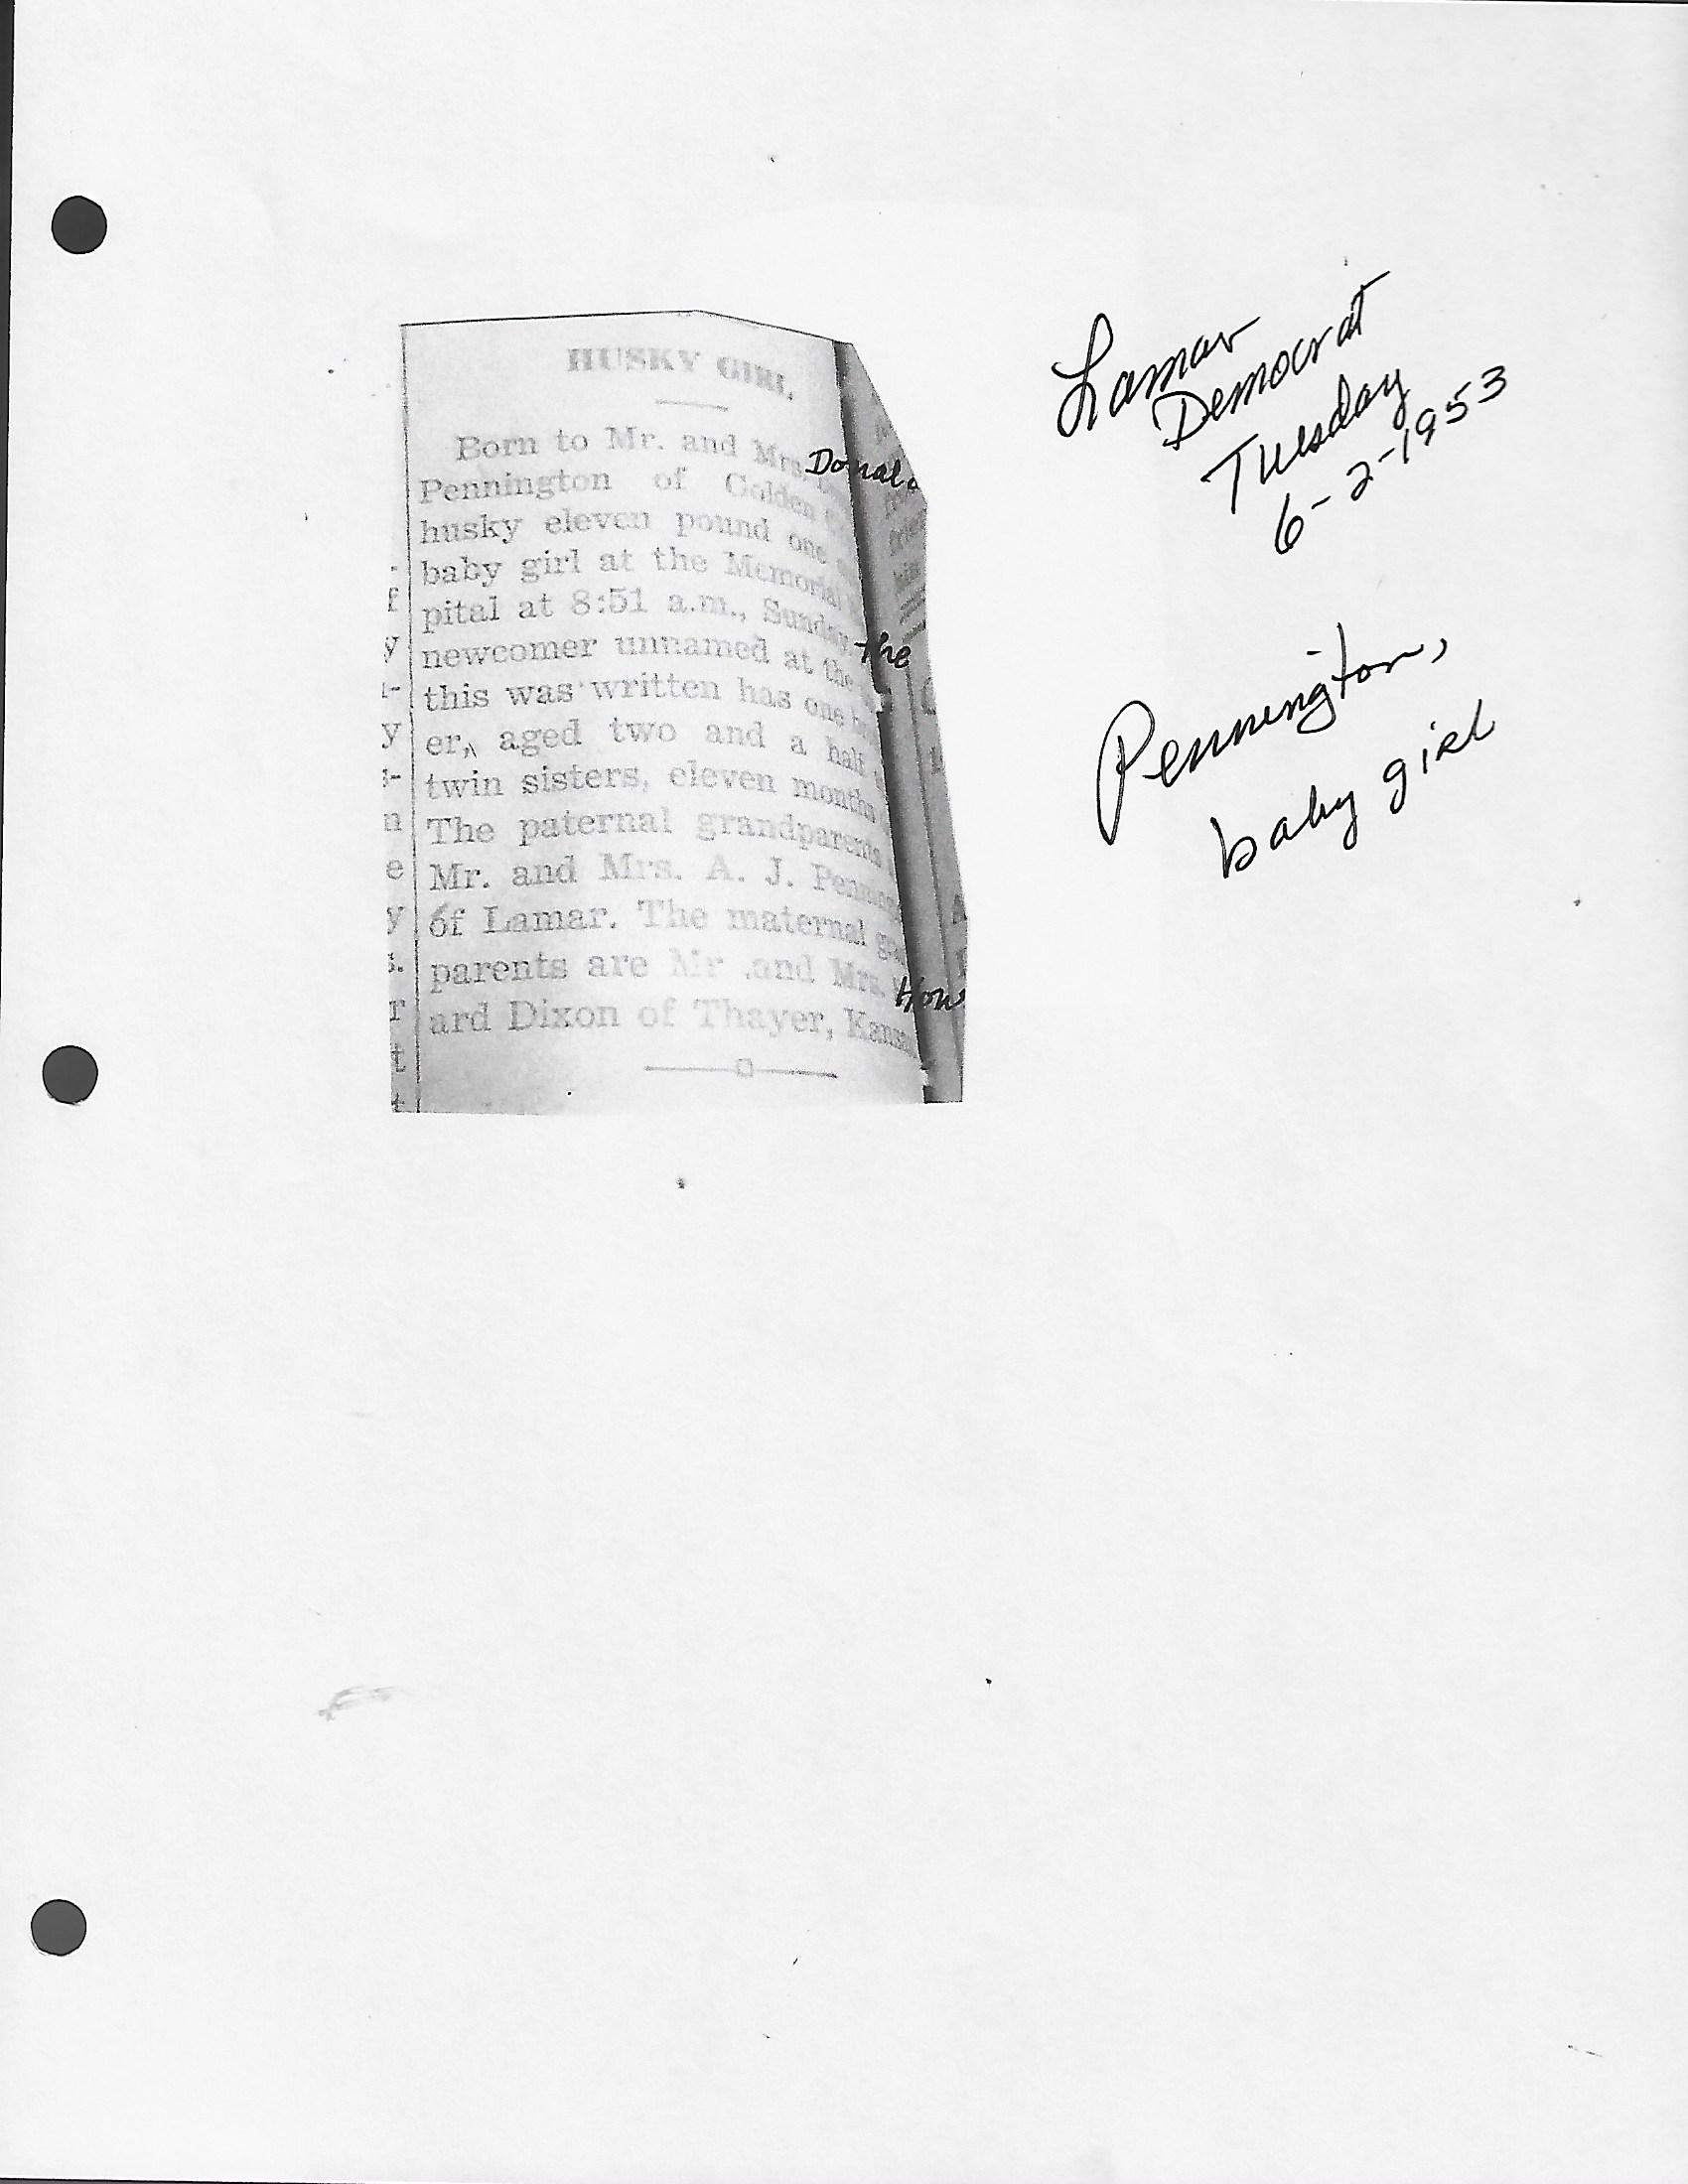 HUSKY GIRL
Born to Mr. and Mrs. Donald
Pennington of Golden
husky eleven pound one
baby girl at the Memorial
pital at 8:51 a.m., Sunday. the
newcomer unnamed at the
this was written has one
er, aged two and a half
twin sisters, eleven months
The paternal grandparents
Mr. and Mrs. A. J. Penning
of Lamar. The maternal
parents are Mr .and Mrs. How
ard Dixon of Thayer, Kansas
Lamar
Democrat
Tuesday
6-2-1953
Pennington,
baby girl